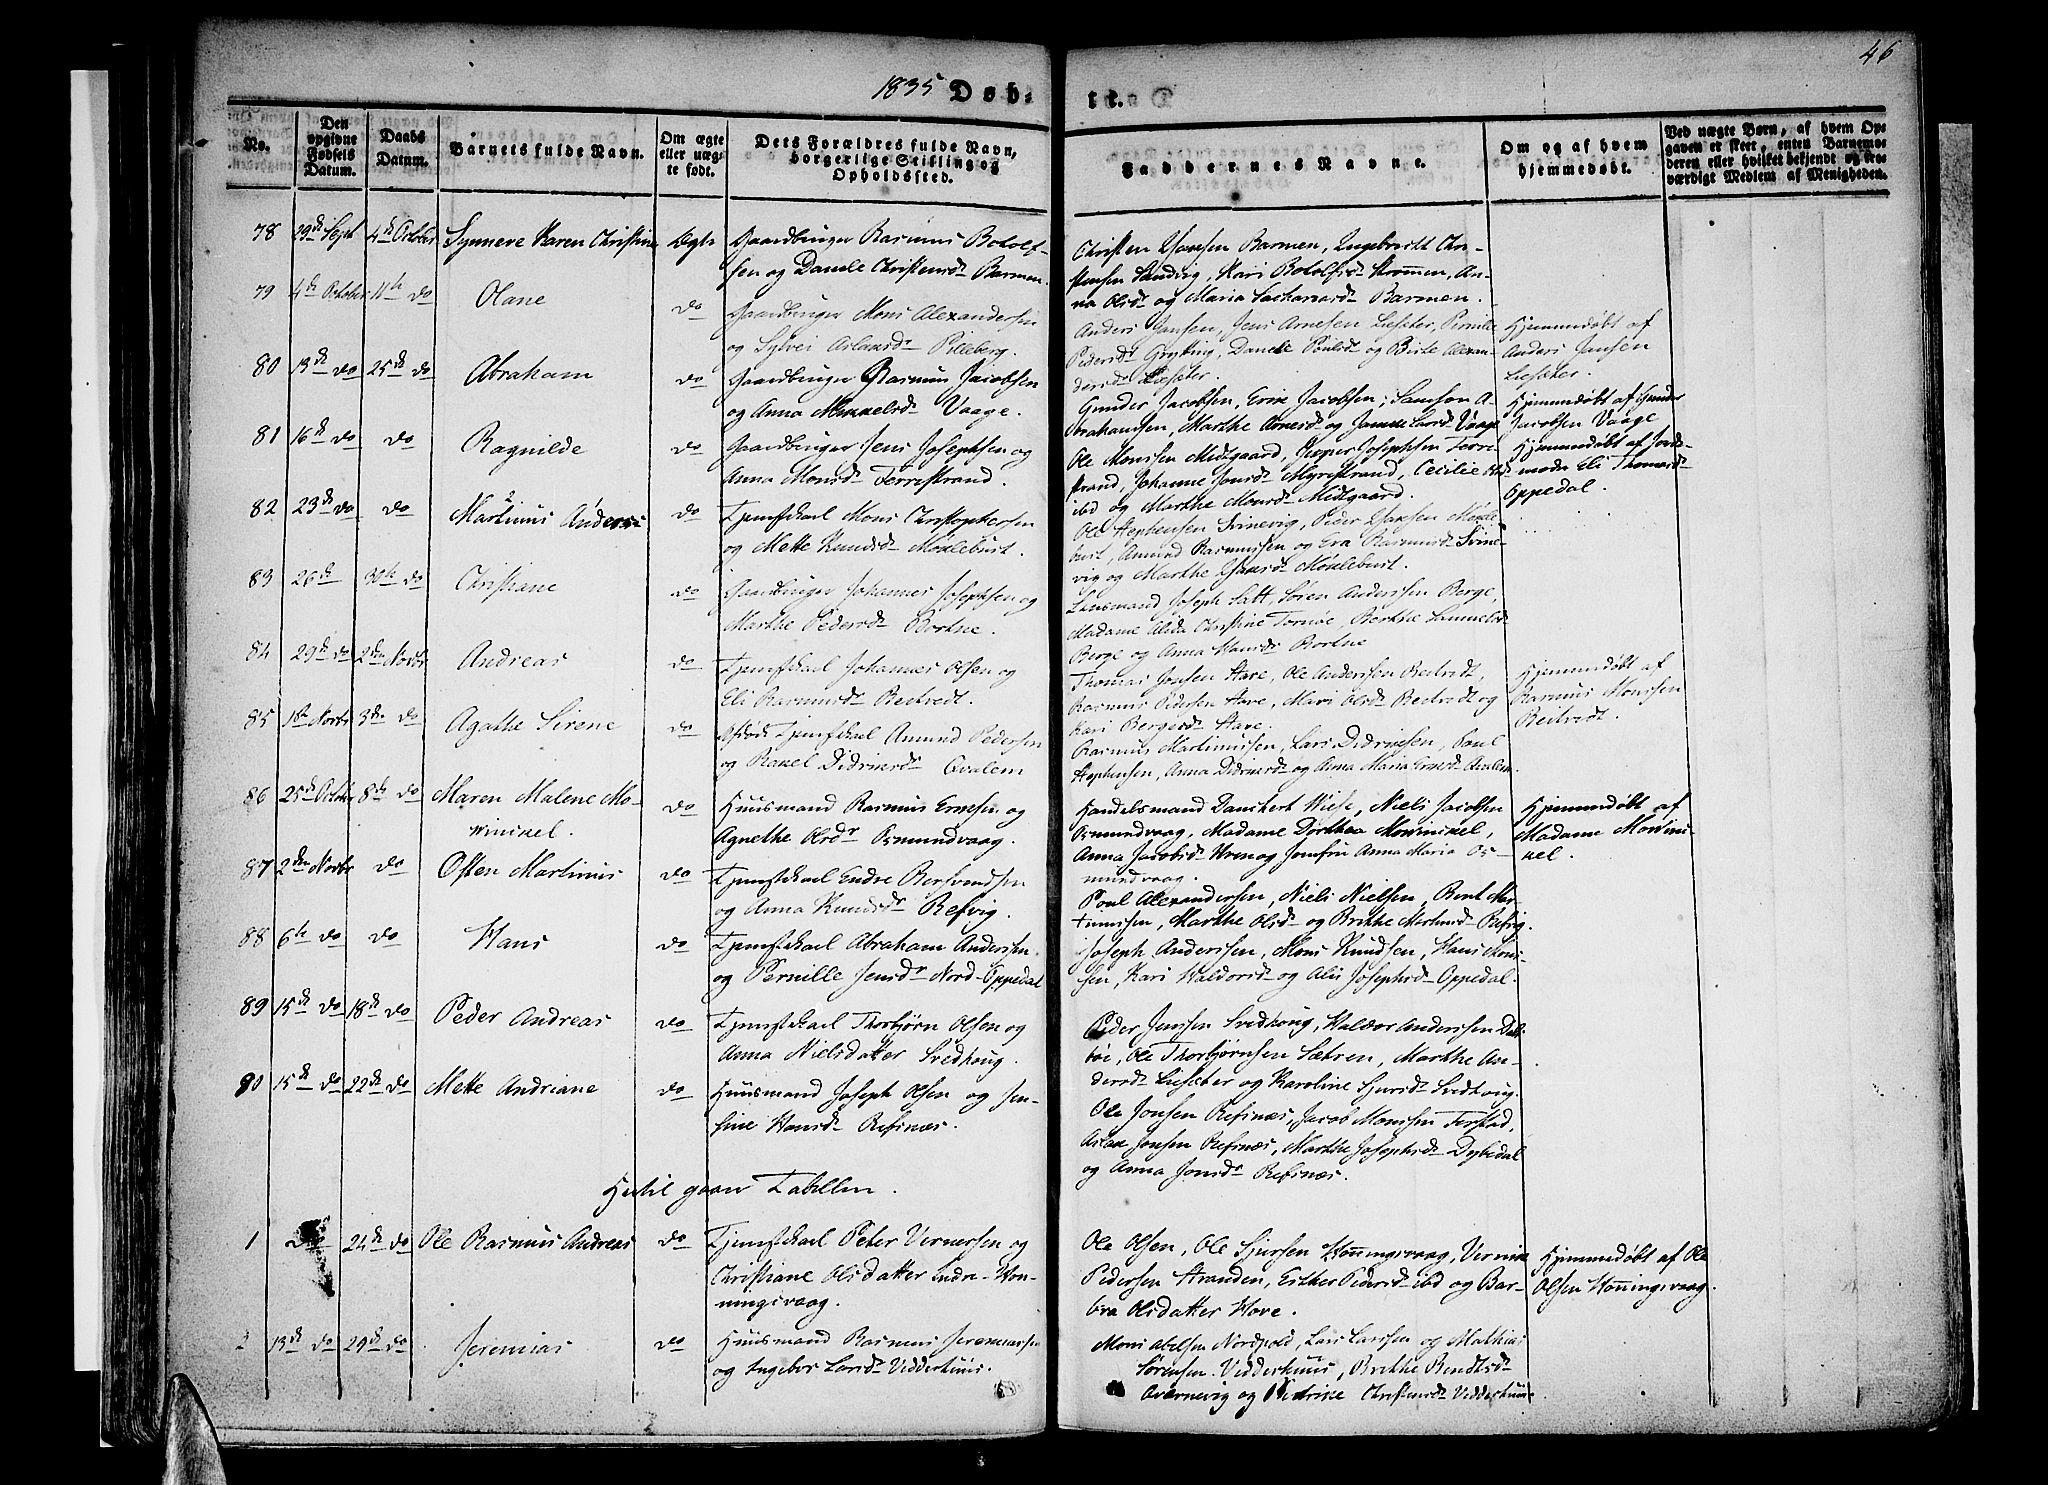 46
1835 Døb- te.
No.
Den opgivne Fødsels Datum.
Daabs Datum.
Barnets fulde Navn.
Om ægte eller uægte født.
Dets Forældres fulde Navn, borgerlige Stilling og Opholdssted.
Faddernes Navne.
Om og af hvem hjemmedøbt.
Ved uægte Børn, af hvem Opgaven er skeet, enten Barnemoderen eller hvilket bekjendt og troværdigt Medlem af Menigheden.
78 29de Sept 4de October Synneve Karen Christine Ægte Gaardbruger Rasmus Botolf-
sen og Danele Christensdr Barmen.
Christen Hansen Barmen, Ingebrigt Chri-
stensen Sandvig, Kari Botolfsdr Strømmen, An-
na Olsdr og Maria Sachariasdr Barmen.
79 4de October 11te do Olane do Gaardbruger Mons Alexandersen
og Sylvei Aslaksdr Pilleberg.
Anders Jansen, Jens Arnesen Liesæter, Pernille
Pedersdr Grytting, Danele Poulsdr og Birte Alexan-
dersdr Liesæter.
Hjemmedøbt af
Anders Jansen
Liesæter.
80 13de do 25de do Abraham do Gaardbruger Rasmus Jacobsen
og Anna Mikkelsdr Vaage.
Gunder Jacobsen, Erik Jacobsen, Samson A-
brahamsen, Marthe Arnesdr og Janne Larsdr Vaage
Hjemmedøbt af Gunder
Jacobsen Vaage
81 16de do do Ragnilde do Gaardbruger Jens Josephsen og
Anna Monsdr Ferrestrand.
Ole Monssen Midtgaard, Jesper Josephsen Ferre-
strand, Johanne Jonsdr Myrestrand, Cecilie Olsdr
ibd og Marthe Monsdr Midtgaard.
Hjemmedøbt af Jorde-
moder Eli Thomasdr
Oppedal.
82 23de do do Martinus Anders do Tjenstekarl Mons Christophersen
og Mette Knudsdr Mokleburst.
Ole Stephensen Svinevig, Peder Hansen Mokle-
burst, Amund Rasmussen og Eva Rasmusdr Svine-
vig og Marthe Hansdr Mokleburst.
83 26de 30te do Christiane do Gaardbruger Johannes Josephsen og
Marthe Pedersdr Bortne.
Lensmand Joseph Satt, Søren Anderssen Berge,
Madame Alida Christine Tornøe, Berthe Samuelsdr
Berge og Anna Hansdr Bortne
84 29de do 2den Novbr Andreas do Tjenstekarl Johannes Olsen og
Eli Rasmusdr Reitvedt.
Thomas Jonsen Have, Ole Anderssen Reitvedt,
Rasmus Pedersen Have, Mari Olsdr Reitvedt og
Kari Bergesdr Have.
Hjemmedøbt af
Rasmus Monssen
Reitvedt.
85 1ste Novbr 3die do Agathe Sirene do Afdøde Tjenstekarl Amund Pedersen
og Rakel Didriksdr Qvalem
Rasmus Martinussen, Lars Didriksen, Poul
Stephensen, Anna Didriksdr og Anna Maria Ernsdr Qvalem.
86 25de October 8de do Maren Malene Mo-
winckel. do Huusmand Rasmus Ernsen og
Agnethe Olsdr Osmundvaag.
Handelsmand Danckert Wiese, Niels Jacobsen
Osmundvaag, Madame Dorthea Mowinckel,
Anna Jacobsdr Vren og Jomfru Anna Maria Os-
mundvaag.
Hjemmedøbt af
Madame Mowinc-
kel.
87 2den Novbr do Osten Martinus do Tjenstekarl Endre Bersvendsen
og Anna Knudsdr Refvig.
Poul Alexandersen, Niels Nielsen, Bent Mar-
tinussen, Marthe Olsdr og Brithe Martinsdr Refvig.
88 6te do do Hans do Tjenstekarl Abraham Anderssen
og Pernille Jensdr Nord-Oppedal
Joseph Anderssen, Mons Knudsen, Hans Mons-
sen, Kari Haldorsdr og Alis Josephsdr Oppedal.
89 15de do 18de do Peder Andreas do Tjenstekarl Thorbjørn Olsen og
Anna Nielsdatter Svedhoug.
Peder Jenssen Svedhoug, Haldor Anderssen Dals-
bøe, Ole Thorbjørnsen Sætren, Marthe An-
dersdr Liesæter og Karoline Sjursdr Svedhoug.
80 15de do 22de do Mette Andriane do Huusmand Joseph Olsen og Jen-
sine Hansdr Refsnæs.
Ole Jonsen Refsnæs, Jacob Monssen Torstad,
Aslak Jonsen Refsnæs, Marthe Josephsdr Dybedal
og Anna Jonsdr Refsnæs.
Hertil gaaer Tabellen.
1 24de do Ole Rasmus Andreas do Tjenstekarl Peter Vernersen og
Christiane Olsdatter Indre-Hon-
ningsvaag.
Ole Olsen, Ole Sjursen Honningsvaag, Vernik
Pedersen Stranden, Esther Pedersdr ibd og Bar-
bra Olsdatter Hove.
Hjemmedøbt af Ole
Olsen Honningsvaag.
2 13de do 29de do Jeremias do Huusmand Rasmus Jeremiassen
og Ingeber Larsdr Vedderhuus.
Mons Abelsen Nordpold, Lars Larssen og Mathias
Sørensen Vedderhuus, Brithe Bendtsdr
Aarnevig og Hedrike Christensdr Vedderhuus.